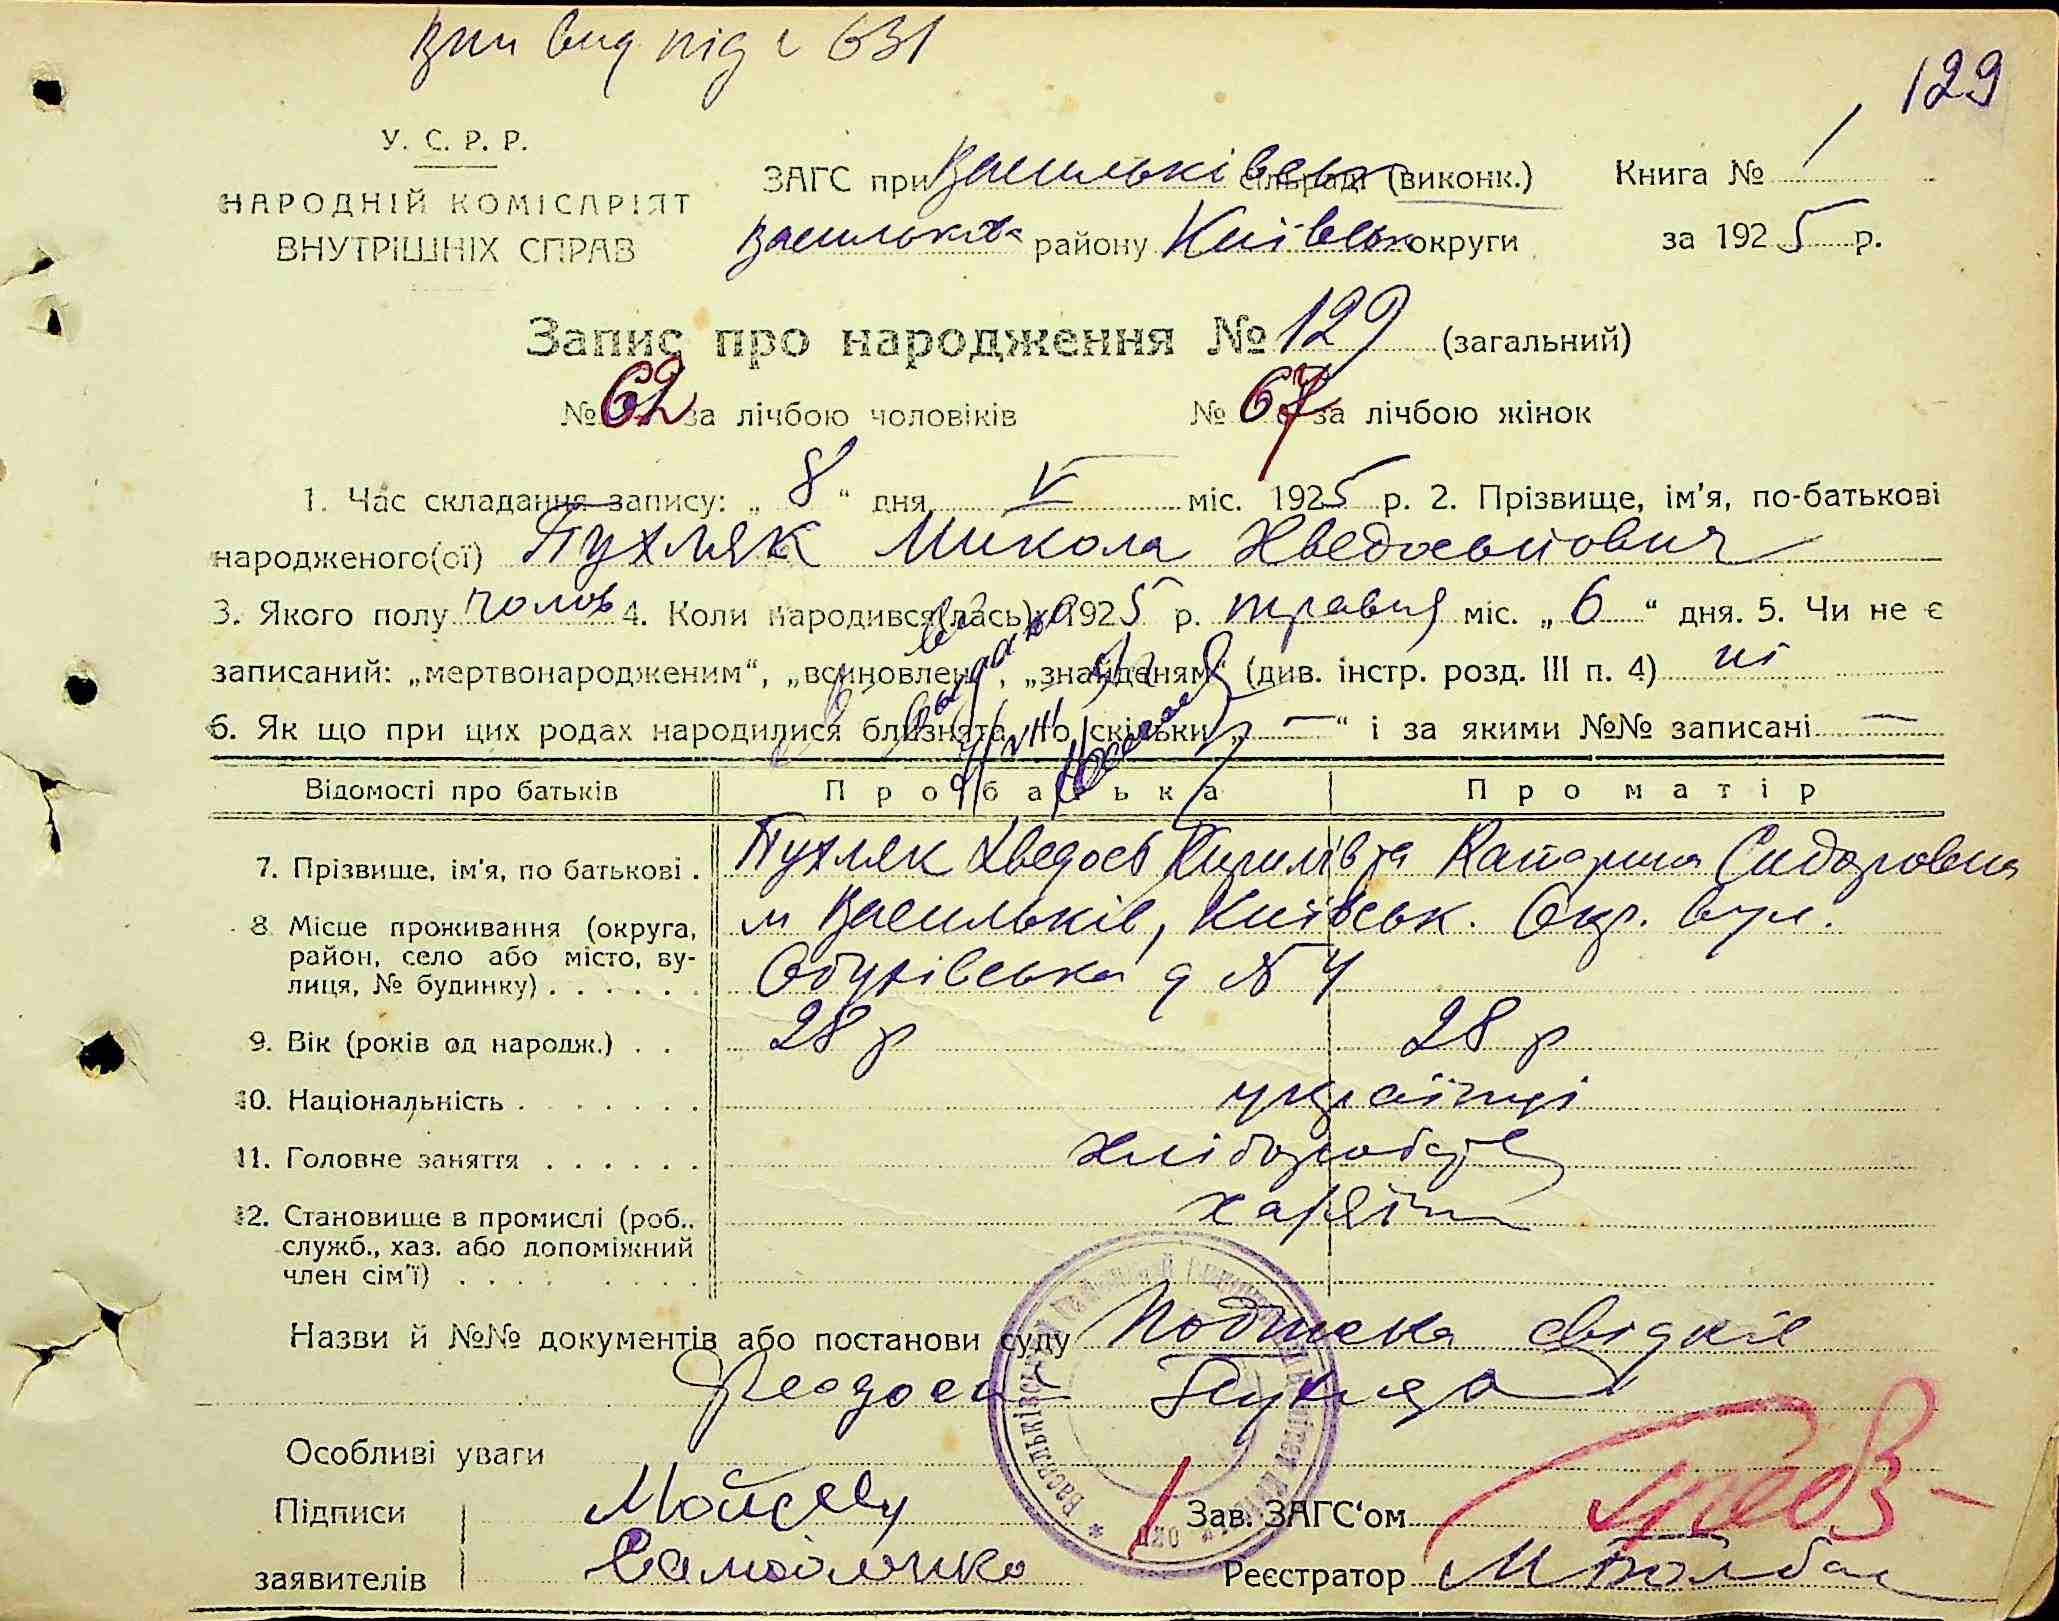 129
У. С. Р. Р.
НАРОДНІЙ КОМІСАРІЯТ
ВНУТРІШНІХ СПРАВ
ЗАГС при Васильківськ сільраді (виконк.) Книга № 1
Васильків району Київськ округи за 1925 р.
Запис про народження № 129 (загальний)
№ 62 за лічбою чоловіків № 67 за лічбою жінок
1. Час складання запису: „ 8 “ дня V міс. 1925 р. 2. Прізвище, ім'я, по-батькові
народженого(ої) Пухляк Микола Хведосьйович
3. Якого полу чолов 4. Коли народився(лась) 1925 р. травня міс. „ 6 “ дня. 5. Чи не є
записаний: „мертвонародженим“, „всиновлен“, „знайденям“ (див. інстр. розд. III п. 4) ні
6. Як що при цих родах народилися близнята, то скільки „ — “ і за якими №№ записані —
Відомості про батьків Про батька Про матір
7. Прізвище, ім'я, по батькові . Пухляк Хведось Кирилів та Катерина Сидоровна
8 Місце проживання (округа, м Васильків, Київськ. Окр. вул.
район, село або місто, ву-
лиця, № будинку) . . . . . . Обухівська д № 4
9. Вік (років од народж.) . . 28 р 28 р
10. Національність . . . . . . . українці
11. Головне заняття . . . . . . хлібороб
12. Становище в промислі (роб.. хазяїн
служб., хаз. або допоміжний
член сім'ї) . . . . . . . . .
Назви й №№ документів або постанови суду Подписка свідків
Феодосій
Особливі уваги
Підписи Зав. ЗАГС'ом
заявителів Самойленко Реєстратор